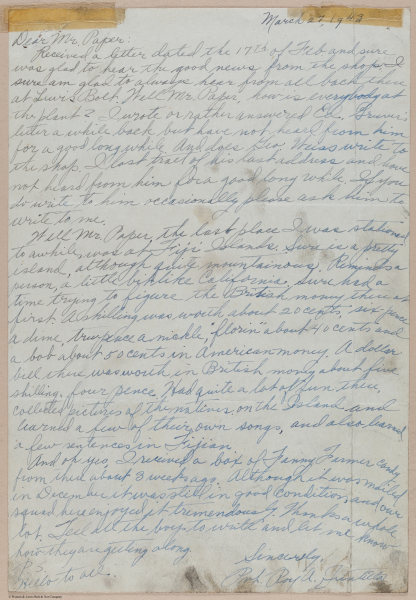 March 27, 1943
Dear Mr. Paper:
Received a letter dated the 17th of Feb and sure
was glad to hear the good news from the shop. I
sure am glad to always hear from all back there
at Lewis Bolt. Well Mr. Paper, how is everybody at
the plant? I wrote or rather answered
letter a while back but have not heard from him
for a good long while. And does Geo. Weiss write to
the shop. I lost tract of his last address and have
not heard from him for a good long while. If you
do write to him occasionally please ask him to
write to me.
Well Mr. Paper, the last place I was stationed
to awhile, was at Fiji Islands. Sure is a pretty
island, although quite mountainous. Reminds a
person, a little bit like California. Sure had a
time trying to figure the British money there at
first. A shilling was worth about 20 cents, six pence
a dime, a nickle, "florin" about 40 cents and
a bob about 50 cents in American money. A dollar
bill there was worth in British money about five
shilling, four pence. Had quite a lot of fun there,
collected pictures of the natives, on the Island and
learned a few of their own songs, and also learned
a few sentences in Fijian.
And oh yes, I received a box of Fanny Farmer candy
from thed about 3 weeks ago. Although it was mailed
in December it was still in good condition, and our
squad here enjoyed it tremendously. Thanks a whole
lot. Tell all the boys to write and let me know
how they are getting along.
Sincerely,
P.S.
Hello to all.
Pvt. Roy A.